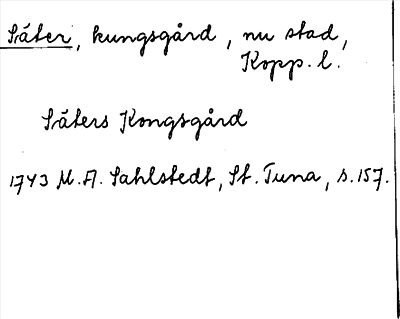 Säter, kungsgård, nu stad,
Kopp. l.
Säters Kongsgård
1743 M. A. Sahlstedt, St. Tuna, s. 157.